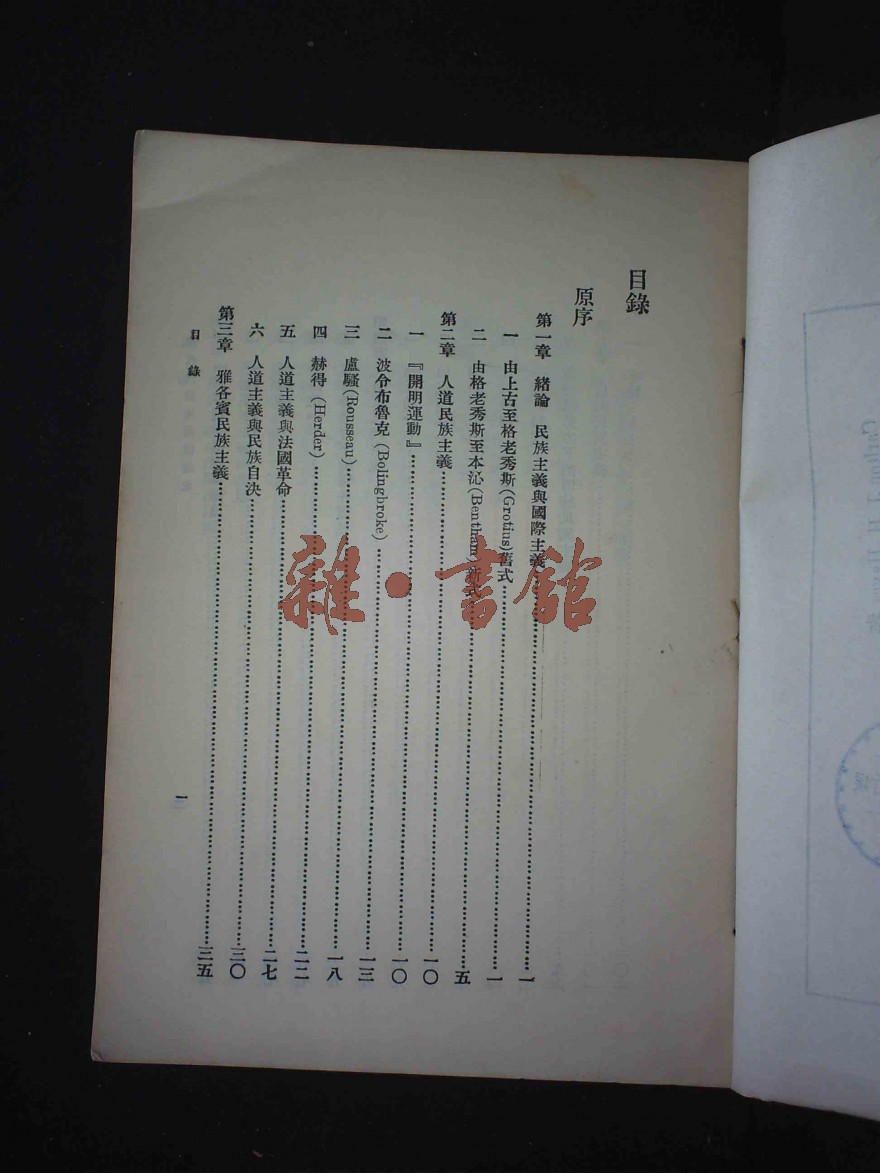 目錄
原序
第一章 緒論 民族主義與國際主義……一
一 由上古至格老秀斯(Grotius)舊式……一
二 由格老秀斯至本沁(Bentham)新式……五
第二章 人道民族主義……一〇
一 『開明運動』……一〇
二 波令布魯克(Bolingbroke)……一三
三 盧騷(Rousseau)……一八
四 赫得(Herder)……二二
五 人道主義與法國革命……二七
六 人道主義與民族自決……三〇
第三章 雅各賓民族主義……三五
目錄
一
雜·書館